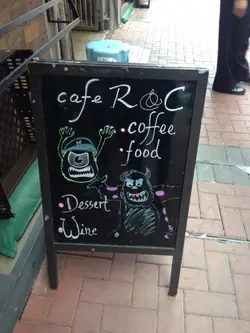 cafe R & C
• coffee
• food
• Dessert
• Wine